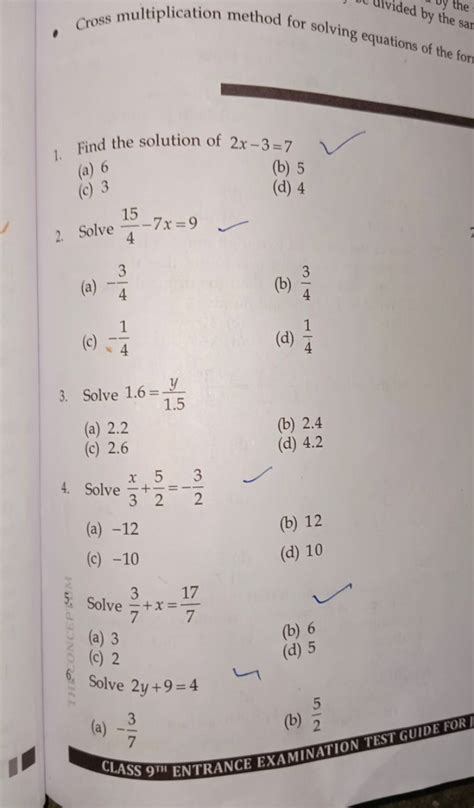 by the
divided by the
• Cross multiplication method for solving equations of the
1. Find the solution of 2x − 3 = 7
(a) 6 (b) 5
(c) 3 (d) 4
2. Solve 15/4 − 7x = 9
(a) −3/4 (b) 3/4
(c) −1/4 (d) 1/4
3. Solve 1.6 = y/1.5
(a) 2.2 (b) 2.4
(c) 2.6 (d) 4.2
4. Solve x/3 + 5/2 = −3/2
(a) −12 (b) 12
(c) −10 (d) 10
5. Solve 3/7 + x = 17/7
(a) 3 (b) 6
(c) 2 (d) 5
6. Solve 2y + 9 = 4
(a) −3/7 (b) 5/2
CLASS 9TH ENTRANCE EXAMINATION TEST GUIDE FOR